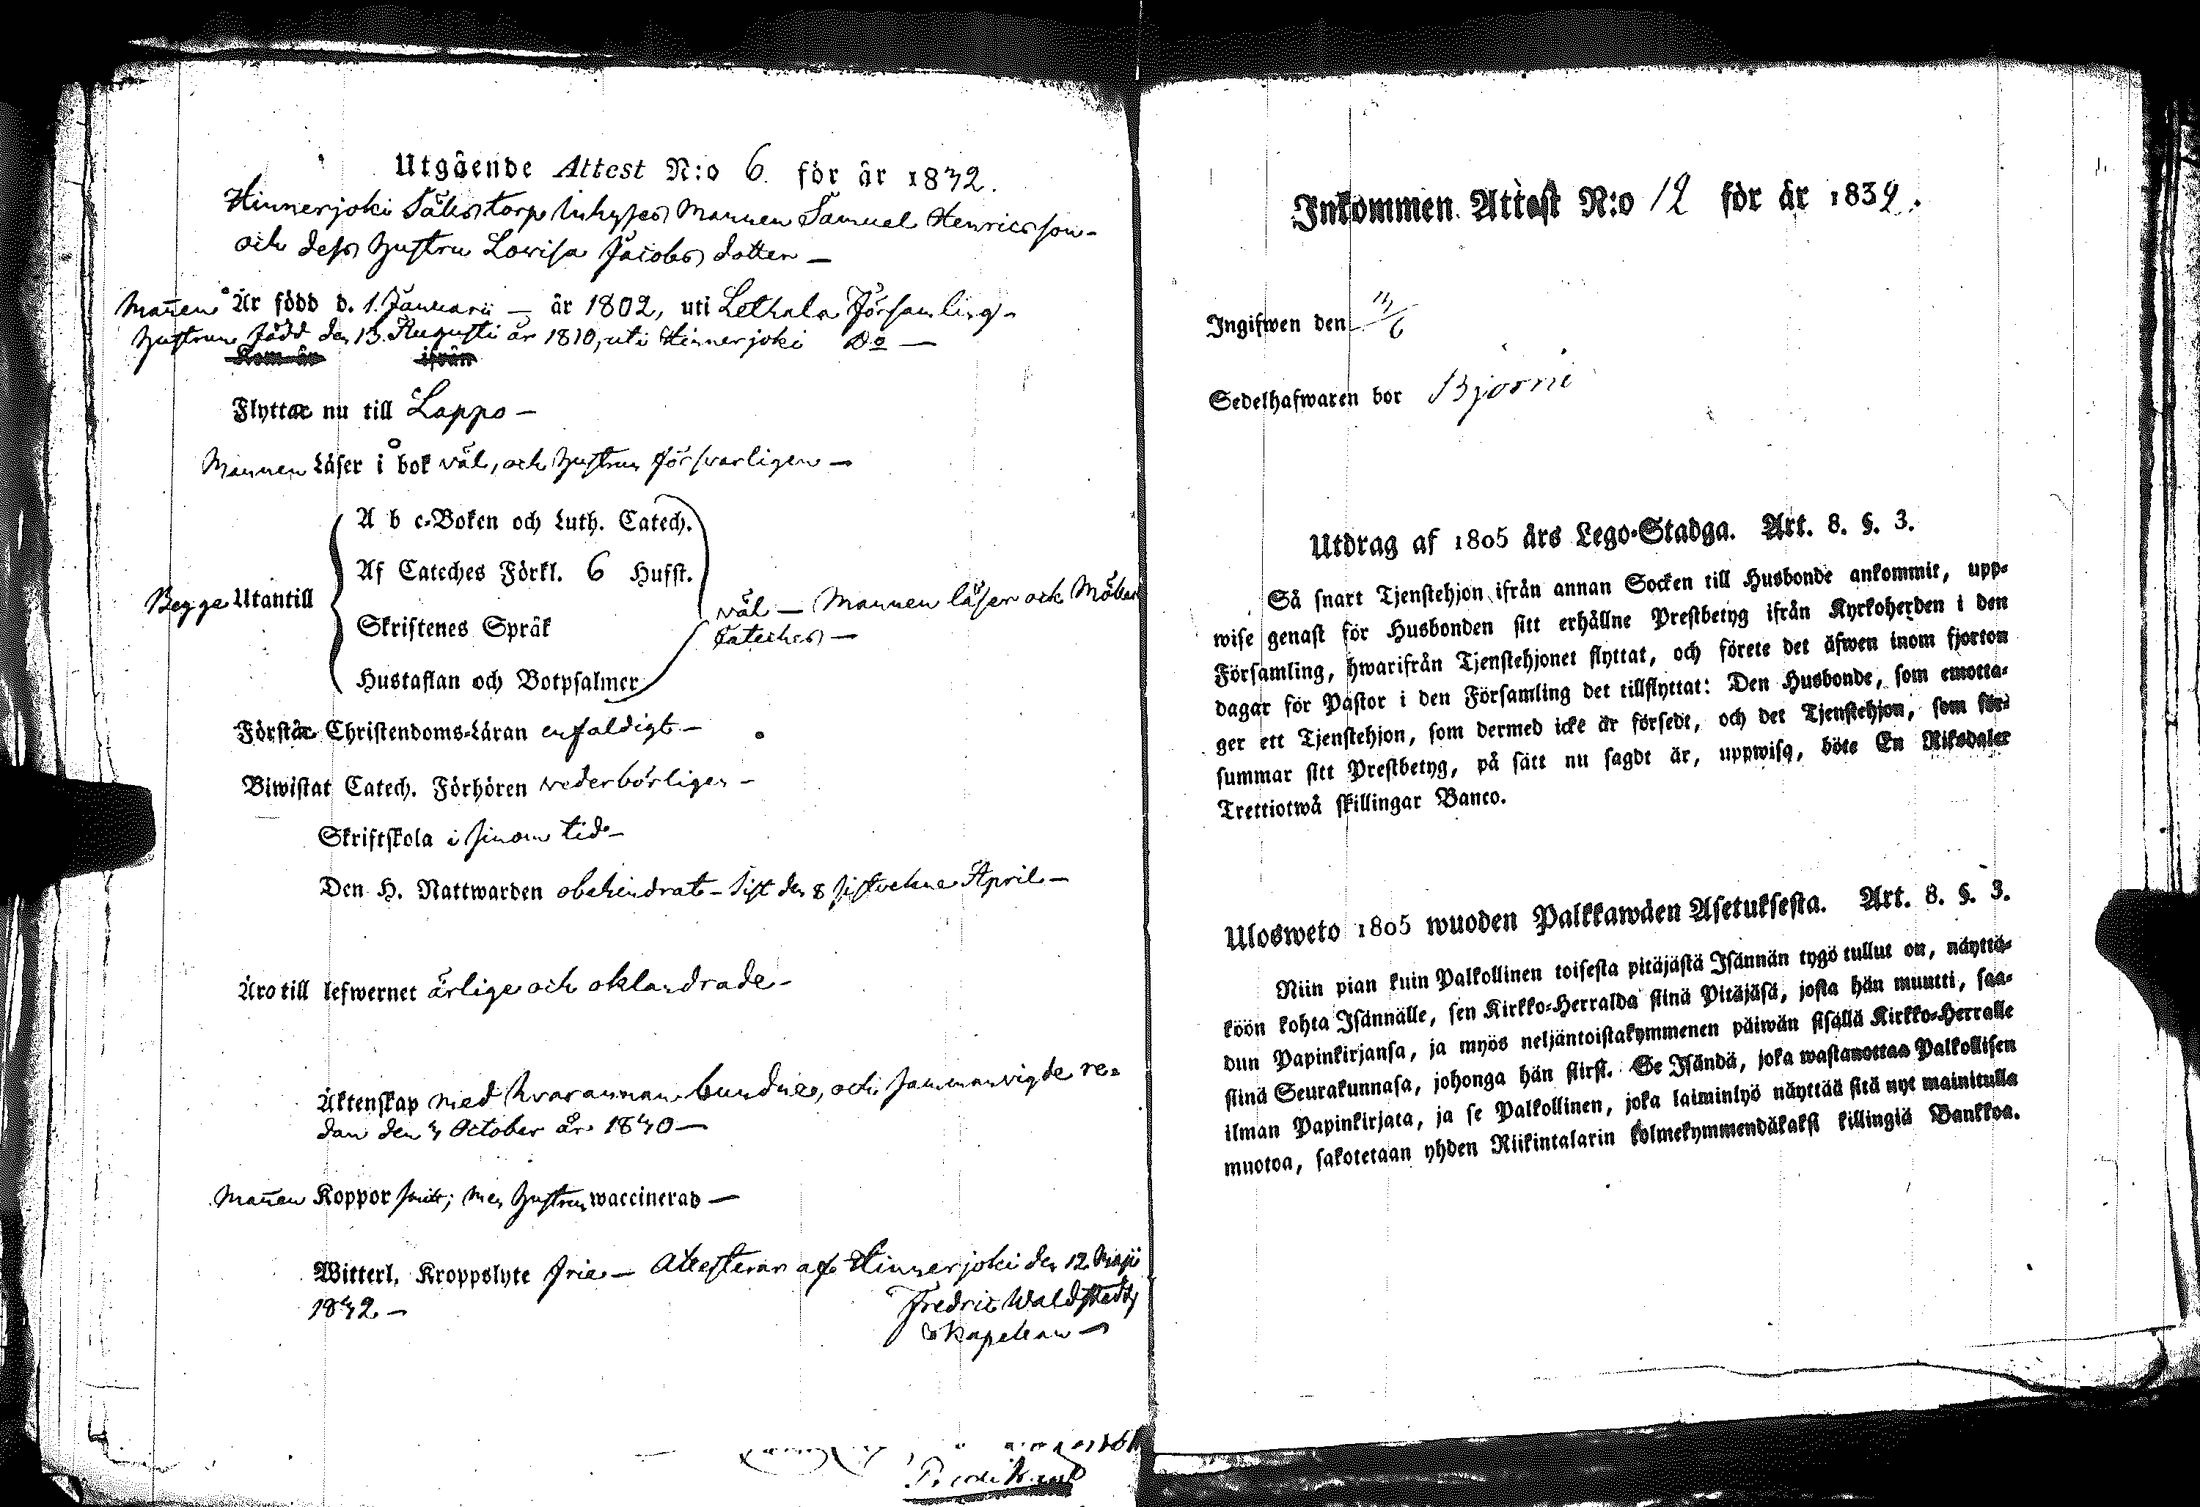 Utgående Attest N:o 6. för år 1832.
Hinnerjoki Sälistorps Inhyses Mannen Samuel Henricsson
och dess Hustru Lovisa Jacobs dotter —
Mañen Är född d. 1. Januarii — år 1802, uti Lethala Församling
Hustrun född den 13. Augusti år 1810, uti Hinnerjoki Do —
Kom år ifrån
Flyttar nu till Lappo —
Mannen Läser i bok väl, och Hustrun försvarligen —
A b c-Boken och Luth. Catech.
Af Cateches Förkl. 6 Hufst.
Begge Utantill
väl — Mannen läser och
Skriftenes Språk
Cateches —
Hustaflan och Botpsalmer
Förstår Christendoms-Läran enfaldigt —
Biwistat Catech. Förhören vederbörligen —
Skriftskola i sinom tid —
Den H. Nattwarden obehindrat — Sist den 8 sistvekne April —
Äro till lefwernet ärlige och oklandrade —
Äktenskap med hvarannan bundne, och sammanvigde re-
dan den 3 October år 1830 —
Mañen Koppor haft; men Hustrun waccinerad —
Witterl. Kroppslyte frie — Attesterar af Hinnerjoki den 12. Maji
1832. —
Fredric Waldstedt
Kapellan —
Inkommen Attest N:o 12 för år 1832.
Ingifwen den 11/6
Sedelhafwaren bor Bjorni
Utdrag af 1805 års Lego-Stadga. Art. 8. §. 3.
Så snart Tjenstehjon ifrån annan Socken till Husbonde ankommit, upp-
wise genast för Husbonden sitt erhållne Prestbetyg ifrån Kyrkoherden i den
Församling, hwarifrån Tjenstehjonet flyttat, och förete det äfwen inom fjorton
dagar för Pastor i den Församling det tillflyttat: Den Husbonde, som emotta-
ger ett Tjenstehjon, som dermed icke är försedt, och det Tjenstehjon, som för-
summar sitt Prestbetyg, på sätt nu sagdt är, uppwisa, böte En Riksdaler
Trettiotwå skillingar Banco.
Ulosweto 1805 wuoden Palkkawäen Asetuksesta. Art. 8. §. 3.
Niin pian kuin Palkollinen toisesta pitäjästä Isännän tygö tullut on, näyttä-
köön kohta Isännälle, sen Kirkko-Herralda siinä Pitäjäsä, josta hän muutti, saa-
dun Papinkirjansa, ja myös neljäntoistakymmenen päiwän sisällä Kirkko-Herralle
siinä Seurakunnasa, johonga hän siirst. Se Isändä, joka wastanottaa Palkollisen
ilman Papinkirjata, ja se Palkollinen, joka laiminlyö näyttää sitä nyt mainitulla
muotoa, sakotetaan yhden Riikintalarin kolmekymmendäkaksi killingiä Bankkoa.